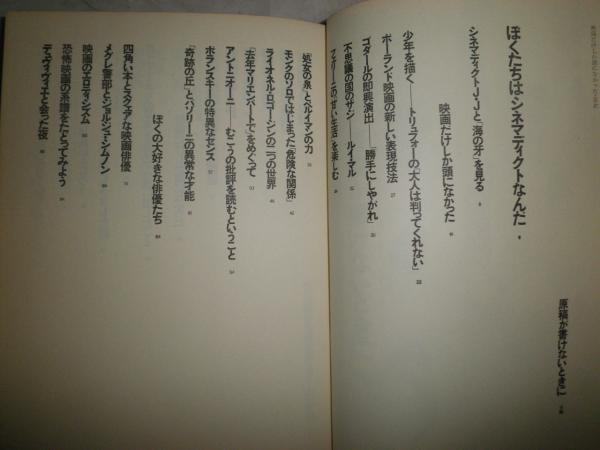 ぼくたちはシネマディクトなんだ
シネマディクトJ・Jと「海の牙」を見る
映画だけしか頭になかった
少年を描く——トリュフォーの「大人は判ってくれない」
ポーランド映画の新しい表現技法
ゴダールの即興演出——「勝手にしやがれ」
不思議の国のサジ——ルイ・マル
フェリーニの「甘い生活」を楽しむ
「処女の泉」とベルイマンの力
モンクのソロではじまった「危険な関係」
ライオネル・ロゴーシンの二つの世界
「去年マリエンバートで」をめぐって
アントニオーニ——むこうの批評を読むということ
ポランスキーの特異なセンス
「奇跡の丘」とパゾリーニの異常な才能
ぼくの大好きな俳優たち
四角い本とスクエアな映画俳優
メグレ警部とジョルジュ・シムノン
映画のエロティシズム
恐怖映画の系譜をたどってみよう
デュヴィヴィエと会った夜
原稿が書けないときに